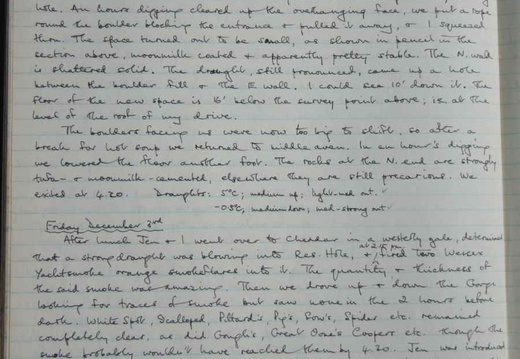 hole. An hours digging cleared up the overhanging face, we put a rope
round the boulder blocking the entrance & pulled it away, & I squeezed
thru. The space turned out to be small, as shown in pencil in the
section above, moonmilk coated & apparently pretty stable. The N. wall
is shattered solid. The draught, still pronounced, came up a hole
between the boulder fill & the E wall. I could see 10' down it. The
floor of the new space is 16' below the survey point above; i.e. at the
level of the roof of my drive.
The boulders facing us were now too big to shift, so after a
break for hot soup we returned to midden. In an hour's digging
we lowered the floor another foot. The rocks at the N. end are strongly
tufa- & moonmilk-cemented, elsewhere they are still precarious. We
exited at 4.20. Draughts: 5°C; medium up; light-med out.
-0.5°C; medium down; med-strong out.
Friday December 3rd
After lunch Jen & I went over to Cheddar in a westerly gale, determined
that a strong draught was blowing into Res. Hole, & at 2.15 pm fired two Wessex
Yachtsmoke orange smokeflares into it. The quantity & thickness of
the said smoke was amazing. Then we drove up & down the Gorge
looking for traces of smoke but saw none in the 2 hours before
dark. White Spot, Scalloped, Pittard's, Pip's, Sow's, Spider etc. remained
completely clear, as did Gough's, Great Oone's Coopers etc. though the
smoke probably wouldn't have reached them by 4.20. Jen was introduced